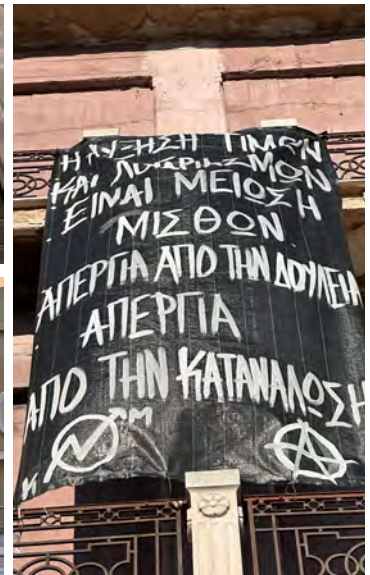 Η ΑΥΞΗΣΗ ΤΙΜΩΝ
ΚΑΙ ΛΟΓΑΡΙΑΣΜΩΝ
ΕΙΝΑΙ ΜΕΙΩΣΗ
ΜΙΣΘΩΝ
ΑΠΕΡΓΙΑ ΑΠΟ ΤΗΝ ΔΟΥΛΕΙΑ
ΑΠΕΡΓΙΑ
ΑΠΟ ΤΗΝ ΚΑΤΑΝΑΛΩΣΗ
Κ Μ Α